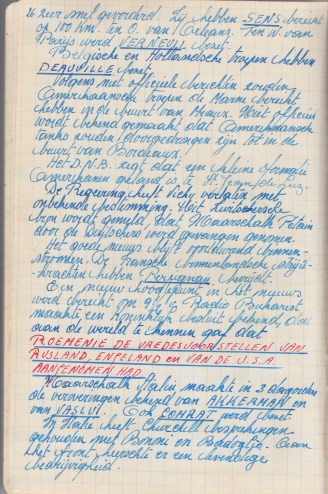 26 zeer snel gevorderd. Zij hebben SENS bereikt
op 100 km. in O. van Orléans. Ten W. van
Parijs werd VERNEUIL bezet.
Belgische en Hollandsche troepen hebben
DEAUVILLE bezet.
Volgens niet officiele berichten zouden
Amerikaansche troepen de Marne bereikt
hebben in de buurt van Meaux. Niet officieel
wordt bekend gemaakt dat Amerikaansche
tanks zouden doorgedrongen zijn tot in de
buurt van Bordeaux.
Het D.N.B. zegt dat een kleine formatie
Amerikanen geland is te St. Jean de Luz.
De Regeering heeft Vichy verlaten met
onbekende bestemming. Uit Zwitsersche
bron wordt gemeld dat Maarschalk Petain
door de Duitschers werd gevangen genomen.
Het goede nieuws blijft voortdurend binnen-
stroomen. De Fransche binnenlandsche strijd-
krachten hebben Perpignan bevrijd.
Een nieuw hoogtepunt in het nieuws
werd bereikt om Radio Bucharest
maakte een Koninklijk besluit bekend, dat
aan de wereld te kennen gaf dat
ROEMENIE DE VREDESVOORSTELLEN VAN
RUSLAND, ENGELAND en VAN DE U.S.A.
AANGENOMEN HAD.
Maarschalk Stalin maakte in 3 dagorders
de veroveringen bekend van AKKERMAN en
van VASLUI. Ook werd bezet
In Italie heeft Churchill besprekingen
gehouden met Bonomi en Badoglio. Aan
het front heerschte er een levendige
bedrijvigheid.